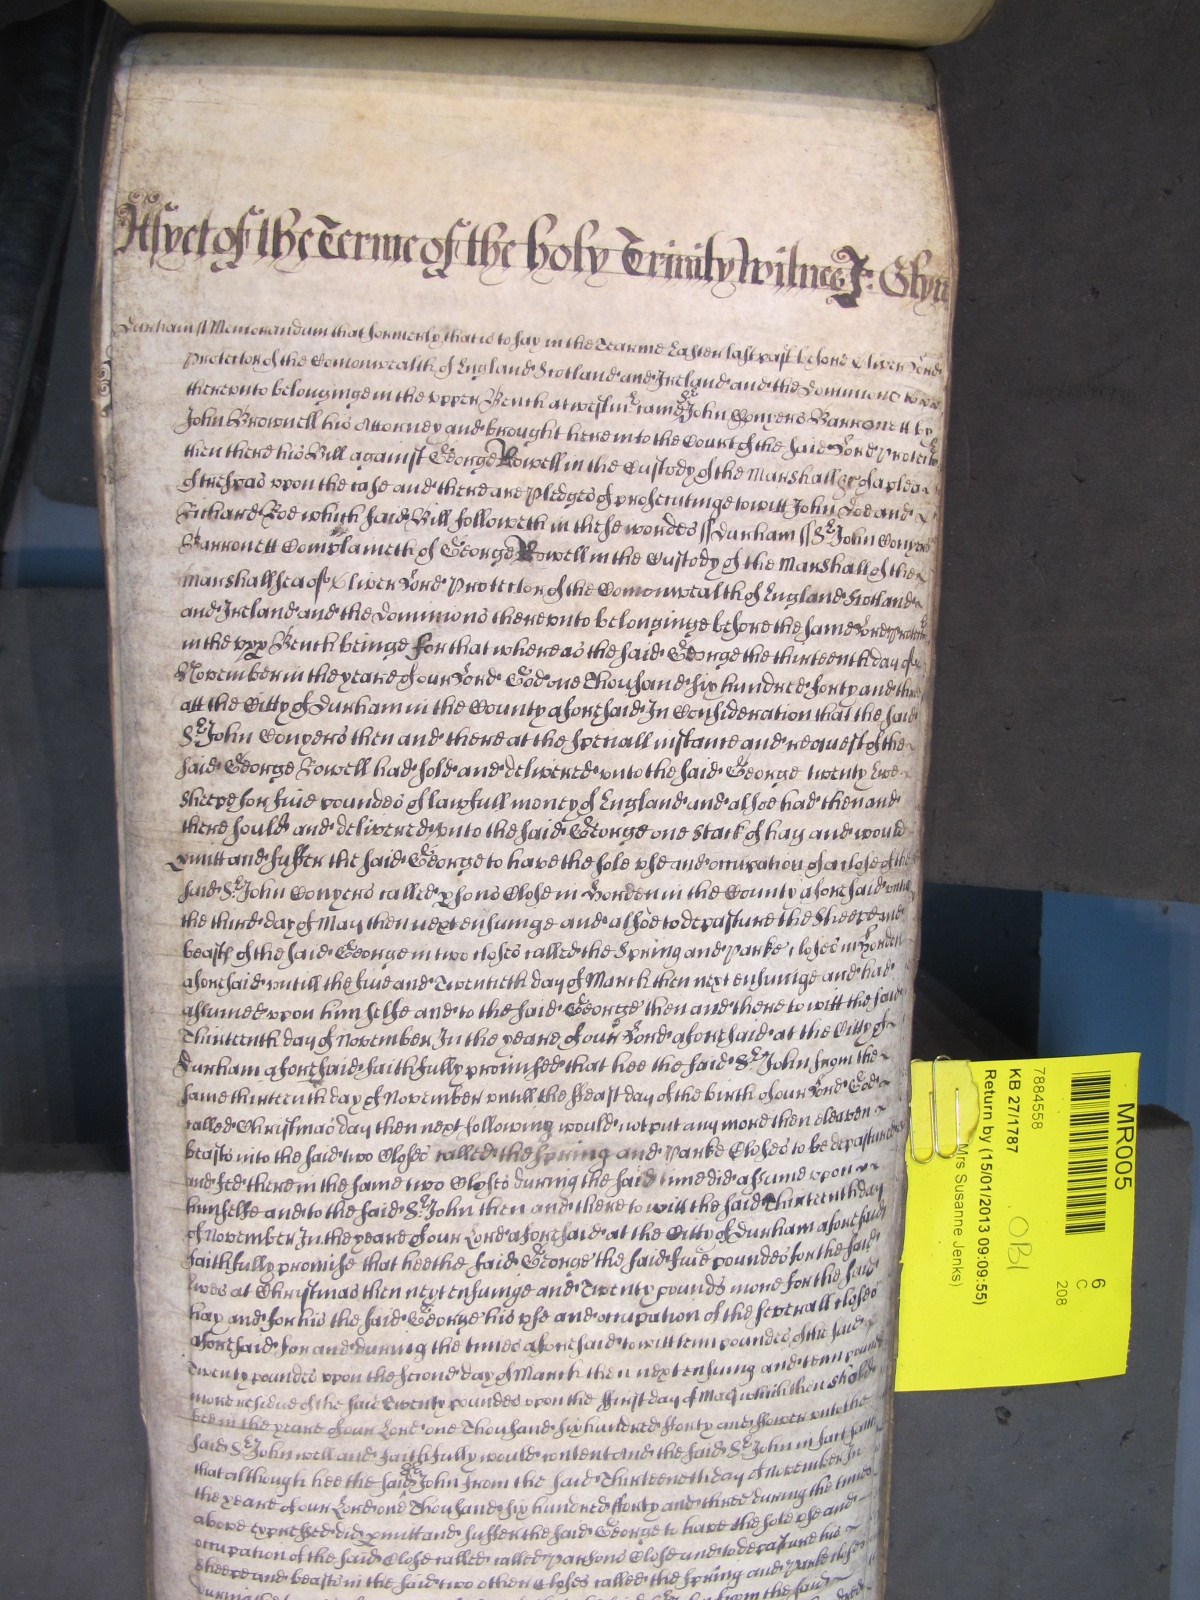 As yet of the Terme of the holy Trinity Witnes Jo: Glyn
Durham ss Memorandum that formerly that is to say in the Tearme Easter last past before Oliver Lord
Protector of the Comonwealth of England Scotland and Ireland and the Dominions
thereunto belonginge in the upper Bench at westmr came Sr John Conyers Barronett by
John Brownell his Attorney and brought here into the Court of the said Lord Protector
then there his Bill against George Rowell in the Custody of the Marshall &c of a plea
of trespas upon the case and there are Pledges of prosecutinge to witt John Doe and
Richard Roe which said Bill followeth in these wordes ss Durham ss Sr John Conyers
Barronett Complaineth of George Rowell in the Custody of the Marshall of the
Marshallsea of Oliver Lord Protector of the Comonwealth of England Scotland
and Ireland and the Dominions thereunto belonginge before the same Lord Protector
in the upp Bench beinge For that whereas the said George the thirteenth day of
November in the yeare of our Lord God one Thousand six hundred forty and three
att the Citty of Durham in the County aforesaid In Consideration that the said
Sr John Conyers then and there at the speciall instance and request of the
said George Rowell had sold and delivered unto the said George twenty Ewe
sheepe for five poundes of lawfull money of England and alsoe had then and
there sould and delivered unto the said George one Stack of hay and would
pmitt and suffer the said George to have the sole use and occupation of a close of the
said Sr John Conyers called psons Close in Horden in the County aforesaid untill
the third day of May then next ensuinge and alsoe to depasture the Sheepe and
beasts of the said George in two closes called the Spring and Parke closes in Horden
aforesaid untill the five and Twentieth day of March then next ensuinge and had
assumed upon himselfe and to the said George then and there to witt the said
Thirteenth day of November In the yeare of our Lord aforesaid at the Citty of
Durham aforesaid faithfully promised that hee the said Sr John from the
same thirteenth day of November untill the Feast day of the birth of our Lord God
called Christmas day then next following would not put any more then eleaven
beasts into the said two Closes called the Spring and Parke Closes to be depastured
and fed therein the same two Closes during the said time did assume upon
himselfe and to the said Sr John then and there to witt the said Thirteenth day
of November In the yeare of our Lord aforesaid at the Citty of Durham aforesaid
faithfully promise that hee the said George the said five poundes for the said
Ewes at Christmas then next ensuinge and Twenty pounds more for the said
hay and for his the said George his use and occupation of the severall closes
aforesaid for and during the times aforesaid to witt tenn poundes of the said
Twenty poundes upon the second day of March then next ensuing and tenn pounds
more residue of the said Twenty poundes upon the First day of May which then should
bee in the yeare of our Lord one Thousand six hundred Forty and Fower unto the
said Sr John well and faithfully would content and the said Sr John in fact saith
that although hee the said Sr John from the said Thirteenth day of November In
the yeare of our Lord one Thousand six hundred forty and three during the times
above expressed did pmitt and suffer the said George to have the sole use and
occupation of the said Close called called Parsons Close and to depasture his
sheepe and beasts in the said two other Closes called the Spring and Parke closes
MR005
6
C
208
7884558
KB 27/1787
Return by (15/01/2013 09:09:55)
Mrs Susanne Jenks)
OBI